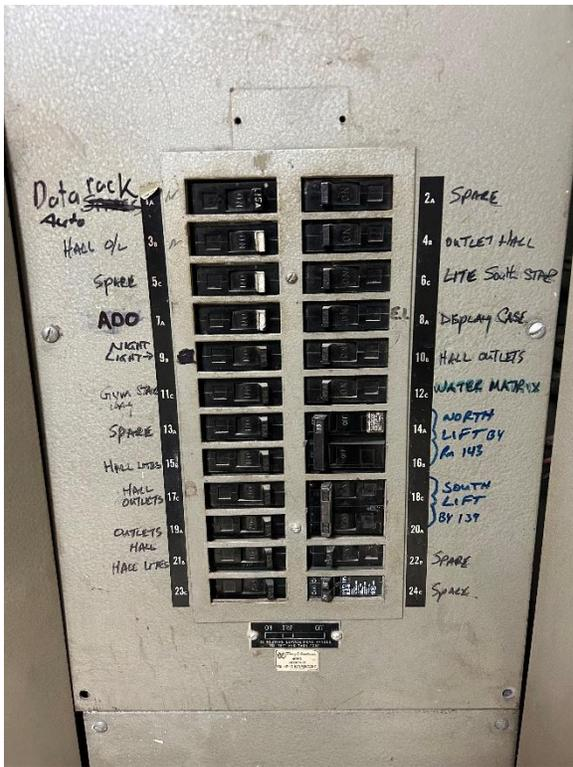 Data rack
Auto
1A
HALL O/L
3B
SPARE
5C
ADO
7A
NIGHT
LIGHT→
9B
GYM
11C
SPARE
13A
HALL LITES
15B
HALL
OUTLETS
17C
OUTLETS
HALL
19A
HALL LITES
21B
23C
2A
SPARE
4B
OUTLET HALL
6C
LITE SOUTH STAR
E.L
8A
DISPLAY CASE
10B
HALL OUTLETS
12C
WATER MATRIX
14A
16B
NORTH
LIFT BY
Rm 143
18C
20A
SOUTH
LIFT
BY 139
22B
SPARE
24C
SPARE
ON
OFF